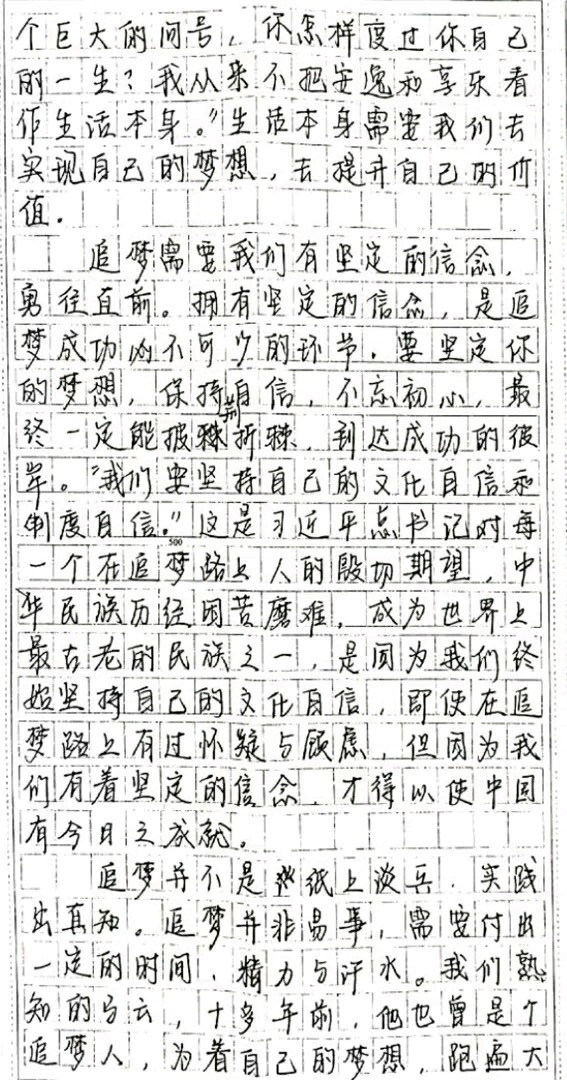 个巨大的问号，你怎样度过你自己
的一生？我从来不把安逸和享乐看
作生活本身。”生活本身需要我们去
实现自己的梦想，去提升自己的价
值。
追梦需要我们有坚定的信念，
勇往直前。拥有坚定的信念，是追
梦成功必不可少的环节。要坚定你
的梦想，保持自信，不忘初心，最
终一定能披荆折棘，到达成功的彼
岸。“我们要坚持自己的文化自信和
制度自信。”这是习近平总书记对每
500
一个在追梦路上人的殷切期望，中
华民族历经困苦磨难，成为世界上
最古老的民族之一，是因为我们终
始坚持自己的文化自信，即使在追
梦路上有过怀疑与顾虑，但因为我
们有着坚定的信念，才得以使中国
有今日之成就。
追梦并不是纸上谈兵，实践
出真知。追梦并非易事，需要付出
一定的时间、精力与汗水。我们熟
知的马云，十多年前，他也曾是个
追梦人，为着自己的梦想，跑遍大